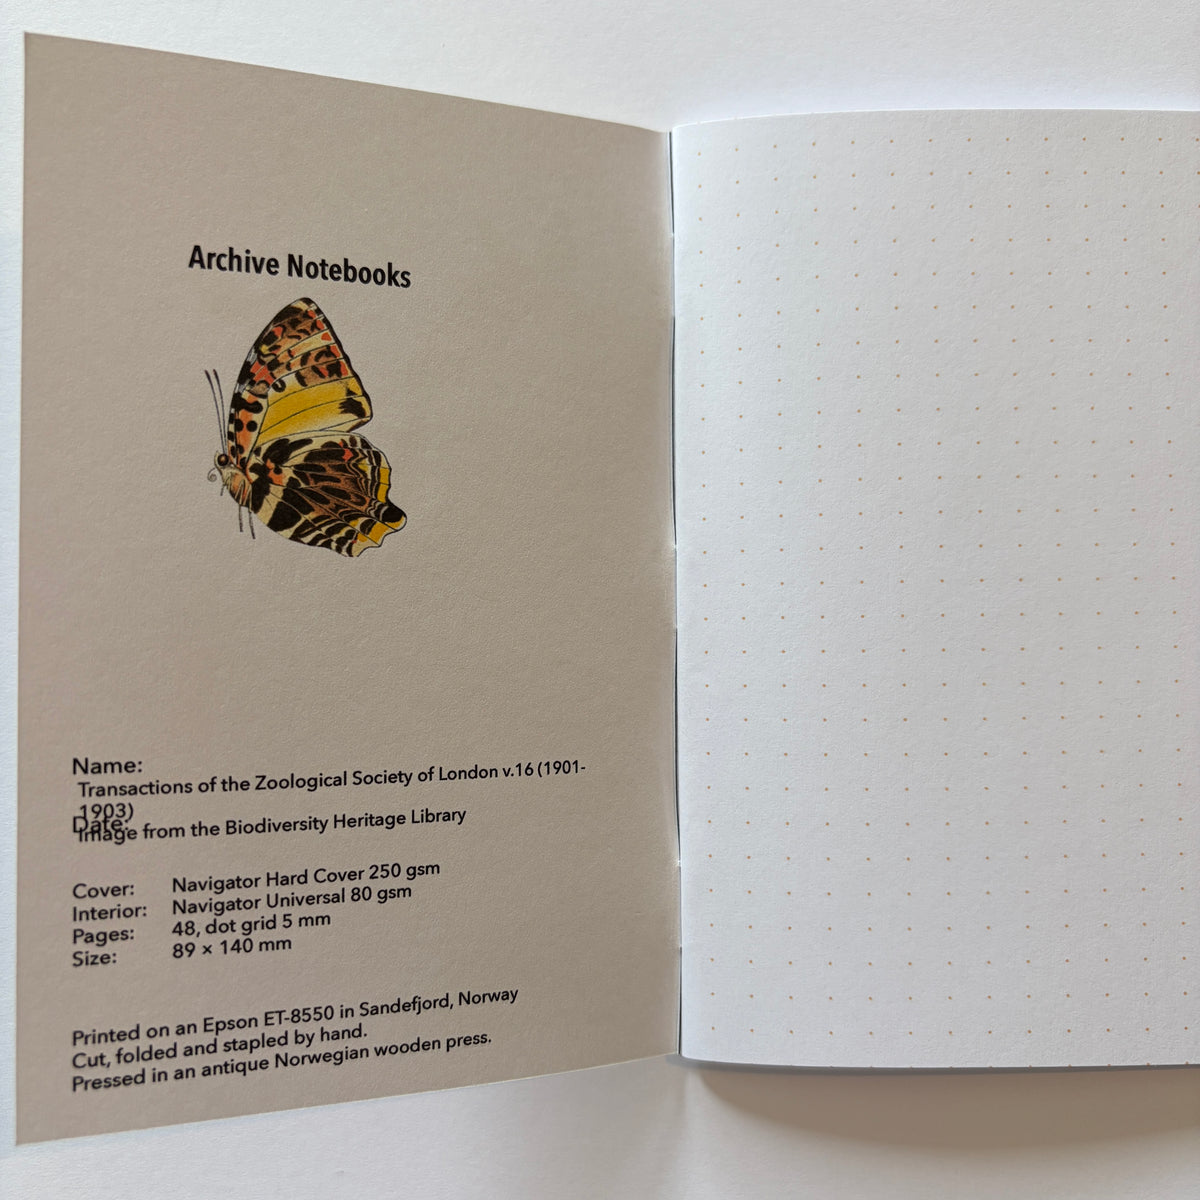 Archive Notebooks
Name:
Transactions of the Zoological Society of London v.16 (1901-
1903)
Date:
Image from the Biodiversity Heritage Library
Cover: Navigator Hard Cover 250 gsm
Interior: Navigator Universal 80 gsm
Pages: 48, dot grid 5 mm
Size: 89 × 140 mm
Printed on an Epson ET-8550 in Sandefjord, Norway
Cut, folded and stapled by hand.
Pressed in an antique Norwegian wooden press.